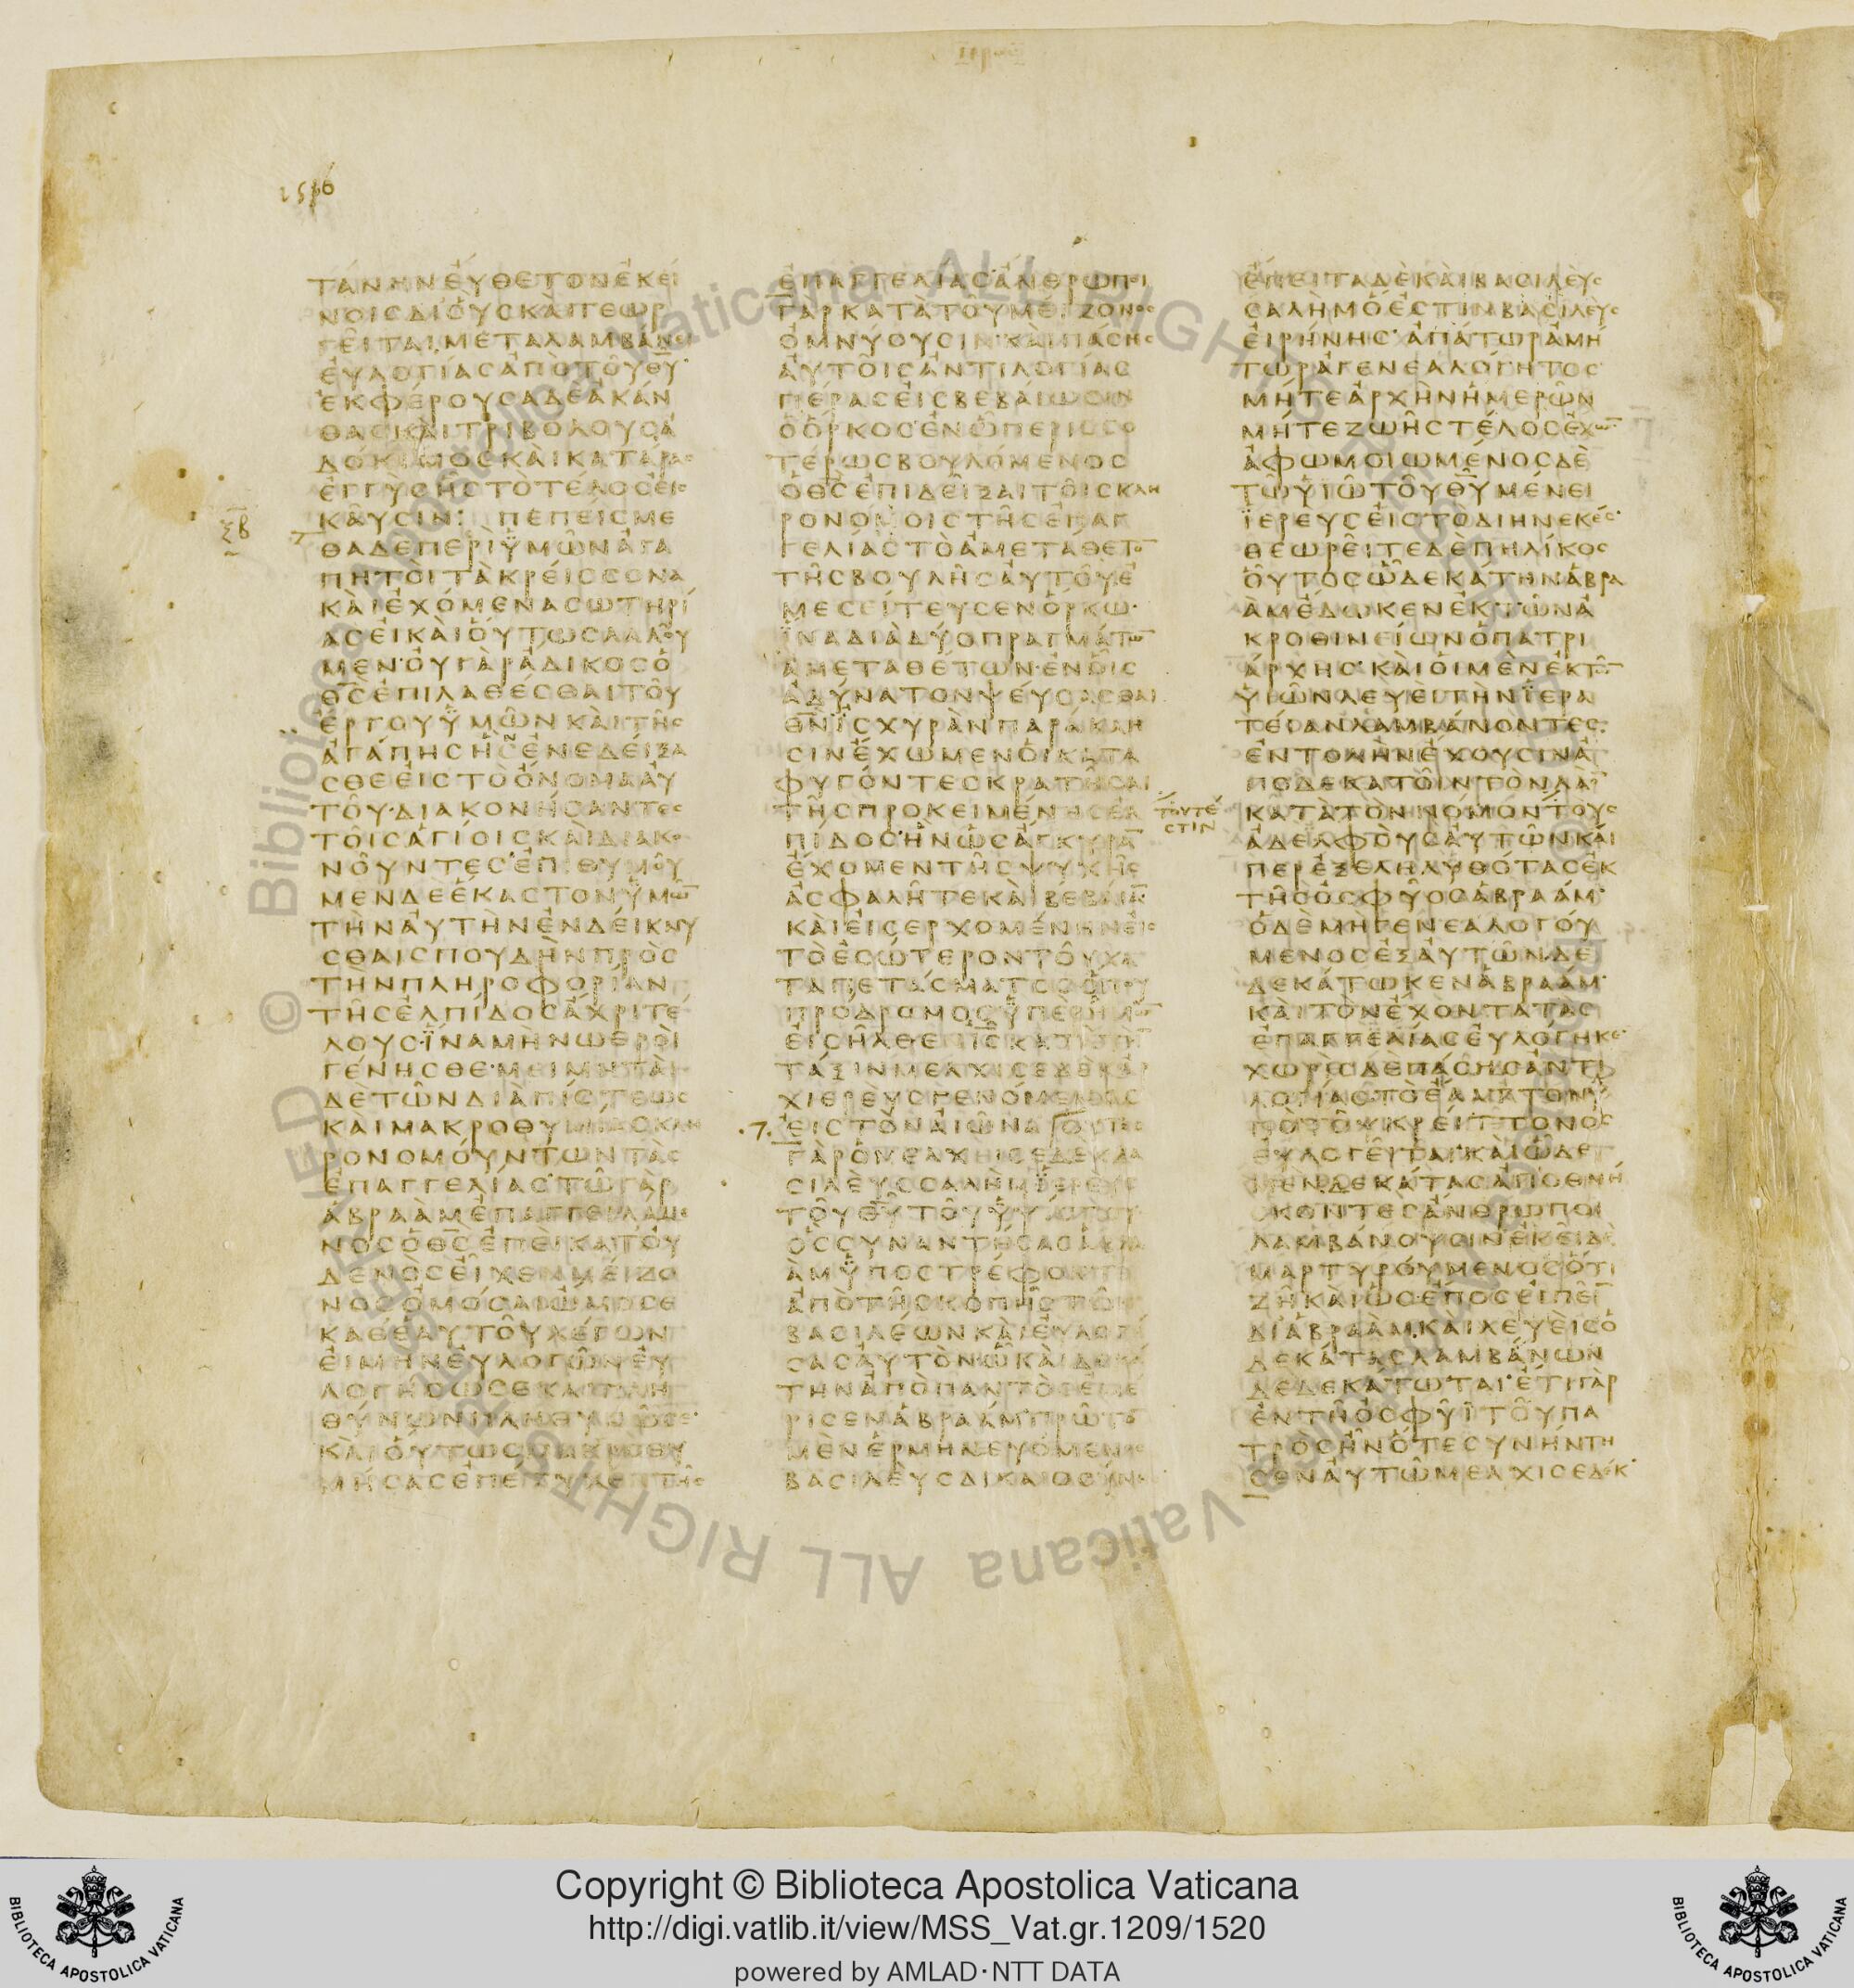 1516
ΤΑΝΗΝΕΥΘΕΤΟΝΕΚΕΙ
ΝΟΙCΔΙΟΥCΚΑΙΓΕΩΡ
ΓΕΙΤΑΙΜΕΤΑΛΑΜΒΑΝΕΙ
ΕΥΛΟΓΙΑCΑΠΟΤΟΥΘΥ
ΕΚΦΕΡΟΥCΑΔΕΑΚΑΝ
ΘΑCΚΑΙΤΡΙΒΟΛΟΥCΑ
ΔΟΚΙΜΟCΚΑΙΚΑΤΑΡΑC
ΕΓΓΥCΗCΤΟΤΕΛΟCΕΙC
ΚΑΥCΙΝ: ΠΕΠΕΙCΜΕ
ΘΑΔΕΠΕΡΙΫΜΩΝΑΓΑ
ΠΗΤΟΙΤΑΚΡΕΙCCΟΝΑ
ΚΑΙΕΧΟΜΕΝΑCΩΤΗΡΙ
ΑCΕΙΚΑΙΟΥΤΩCΛΑΛΟΥ
ΜΕΝ·ΟΥΓΑΡΑΔΙΚΟCΟ
ΘCΕΠΙΛΑΘΕCΘΑΙΤΟΥ
ΕΡΓΟΥΫΜΩΝΚΑΙΤΗC
ΑΓΑΠΗCΗCΕΝΕΔΕΙΞΑ
CΘΕΕΙCΤΟΟΝΟΜΑΑΥ
ΤΟΥ·ΔΙΑΚΟΝΗCΑΝΤΕC
ΤΟΙCΑΓΙΟΙCΚΑΙΔΙΑΚΟ
ΝΟΥΝΤΕC·ΕΠΙΘΥΜΟΥ
ΜΕΝΔΕΕΚΑCΤΟΝΫΜΩ̅
ΤΗΝΑΥΤΗΝΕΝΔΕΙΚΝΥ
CΘΑΙCΠΟΥΔΗΝΠΡΟC
ΤΗΝΠΛΗΡΟΦΟΡΙΑΝ
ΤΗCΕΛΠΙΔΟCΑΧΡΙΤΕ
ΛΟΥC·ΪΝΑΜΗΝΩΘΡΟΙ
ΓΕΝΗCΘΕ·ΜΕΙΜΗΤΑΙ
ΔΕΤΩΝΔΙΑΠΙCΤΕΩC
ΚΑΙΜΑΚΡΟΘΥΜΙΑCΚΛΗ
ΡΟΝΟΜΟΥΝΤΩΝΤΑC
ΕΠΑΓΓΕΛΙΑC·ΤΩΓΑΡ
ΑΒΡΑΑΜΕΠΑΓΓΕΙΛΑΜΕ
ΝΟCΟΘCΕΠΕΙΚΑΤΟΥ
ΔΕΝΟCΕΙΧΕΝΜΕΙΖΟ
ΝΟCΟΜΟCΑΙΩΜΟCΕ
ΚΑΘΕΑΥΤΟΥΛΕΓΩΝ
ΕΙΜΗΝΕΥΛΟΓΩΝΕΥ
ΛΟΓΗCΩCΕΚΑΙΠΛΗ
ΘΥΝΩΝΠΛΗΘΥΝΩCΕ·
ΚΑΙΟΥΤΩCΜΑΚΡΟΘΥ
ΜΗCΑCΕΠΕΤΥΧΕΝΤΗC
ΞΒ
ΕΠΑΓΓΕΛΙΑC·ΑΝΘΡΩΠΟΙ
ΓΑΡΚΑΤΑΤΟΥΜΕΙΖΟΝΟC
ΟΜΝΥΟΥCΙΝ·ΚΑΙΠΑCΗC
ΑΥΤΟΙCΑΝΤΙΛΟΓΙΑC
ΠΕΡΑCΕΙCΒΕΒΑΙΩCΙΝ
ΟΟΡΚΟC·ΕΝΩΠΕΡΙCCΟ
ΤΕΡΩCΒΟΥΛΟΜΕΝΟC
ΟΘCΕΠΙΔΕΙΞΑΙΤΟΙCΚΛΗ
ΡΟΝΟΜΟΙCΤΗCΕΠΑΓ
ΓΕΛΙΑCΤΟΑΜΕΤΑΘΕΤΟ̅
ΤΗCΒΟΥΛΗCΑΥΤΟΥΕ
ΜΕCΕΙΤΕΥCΕΝΟΡΚΩ·
ΪΝΑΔΙΑΔΥΟΠΡΑΓΜΑΤΩ̅
ΑΜΕΤΑΘΕΤΩΝ·ΕΝΟΙC
ΑΔΥΝΑΤΟΝΨΕΥCΑCΘΑΙ
ΘΝΪCΧΥΡΑΝΠΑΡΑΚΛΗ
CΙΝΕΧΩΜΕΝΟΙΚΑΤΑ
ΦΥΓΟΝΤΕCΚΡΑΤΗCΑΙ
ΤΗCΠΡΟΚΕΙΜΕΝΗCΕΛ
ΠΙΔΟC·ΗΝΩCΑΓΚΥΡΑ̅
ΕΧΟΜΕΝΤΗCΨΥΧΗC
ΑCΦΑΛΗΤΕΚΑΙΒΕΒΑΙΑ̅
ΚΑΙΕΙCΕΡΧΟΜΕΝΗΝΕΙC
ΤΟΕCΩΤΕΡΟΝΤΟΥΚΑ
ΤΑΠΕΤΑCΜΑΤΟCΟΠΟΥ
ΠΡΟΔΡΟΜΟCΫΠΕΡΗΜΩ̅
ΕΙCΗΛΘΕΝΙCΚΑΤΑΤΗ̅
ΤΑΞΙΝΜΕΛΧΙCΕΔΕΚΑΡ
ΧΙΕΡΕΥCΓΕΝΟΜΕΝΟC
·7· ΕΙCΤΟΝΑΙΩΝΑΟΥΤΟC
ΓΑΡΟΜΕΛΧΙCΕΔΕΚΒΑ
CΙΛΕΥCCΑΛΗΜΪΕΡΕΥC
ΤΟΥΘΥΤΟΥΫΨΙCΤΟΥ
ΟCCΥΝΑΝΤΗCΑCΑΒΡΑ
ΑΜΫΠΟCΤΡΕΦΟΝΤΙ
ΑΠΟΤΗCΚΟΠΗCΤΩΝ
ΒΑCΙΛΕΩΝΚΑΙΕΥΛΟΓΗ
CΑCΑΥΤΟΝΩΚΑΙΔΕΚΑ
ΤΗΝΑΠΟΠΑΝΤΟCΕΜΕ
ΡΙCΕΝΑΒΡΑΑΜ·ΠΡΩΤΟ̅
ΜΕΝΕΡΜΗΝΕΥΟΜΕΝΟC
ΒΑCΙΛΕΥCΔΙΚΑΙΟCΥΝΗC
ΤΟΥΤΕ
CΤΙΝ
ΕΠΕΙΤΑΔΕΚΑΙΒΑCΙΛΕΥC
CΑΛΗΜΟΕCΤΙΝΒΑCΙΛΕΥC
ΕΙΡΗΝΗC·ΑΠΑΤΩΡΑΜΗ
ΤΩΡΑΓΕΝΕΑΛΟΓΗΤΟC
ΜΗΤΕΑΡΧΗΝΗΜΕΡΩΝ
ΜΗΤΕΖΩΗCΤΕΛΟCΕΧΩ̅
ΑΦΩΜΟΙΩΜΕΝΟCΔΕ
ΤΩΥΙΩΤΟΥΘΥΜΕΝΕΙ
ΪΕΡΕΥCΕΙCΤΟΔΙΗΝΕΚΕC·
ΘΕΩΡΕΙΤΕΔΕΠΗΛΙΚΟC
ΟΥΤΟCΩΔΕΚΑΤΗΝΑΒΡΑ
ΑΜΕΔΩΚΕΝΕΚΤΩΝΑ
ΚΡΟΘΙΝΕΙΩΝΟΠΑΤΡΙ
ΑΡΧΗC·ΚΑΙΟΙΜΕΝΕΚΤΩ̅
ΥΙΩΝΛΕΥΕΙΤΗΝΪΕΡΑ
ΤΕΙΑΝΛΑΜΒΑΝΟΝΤΕC
ΕΝΤΟΛΗΝΕΧΟΥCΙΝΑ
ΠΟΔΕΚΑΤΟΙΝΤΟΝΛΑΟ̅
ΚΑΤΑΤΟΝΝΟΜΟΝΤΟΥC
ΑΔΕΛΦΟΥCΑΥΤΩΝΚΑΙ
ΠΕΡΕΞΕΛΗΛΥΘΟΤΑCΕΚ
ΤΗCΟCΦΥΟCΑΒΡΑΑΜ·
ΟΔΕΜΗΓΕΝΕΑΛΟΓΟΥ
ΜΕΝΟCΕΞΑΥΤΩΝΔΕ
ΔΕΚΑΤΩΚΕΝΑΒΡΑΑΜ·
ΚΑΙΤΟΝΕΧΟΝΤΑΤΑC
ΕΠΑΓΓΕΛΙΑCΕΥΛΟΓΗΚΕ·
ΧΩΡΙCΔΕΠΑCΗCΑΝΤΙ
ΛΟΓΙΑCΤΟΕΛΑΤΤΟΝΥ
ΠΟΤΟΥΚΡΕΙΤΤΟΝΟC
ΕΥΛΟΓΕΙΤΑΙ·ΚΑΙΩΔΕ
ΜΕΝΔΕΚΑΤΑCΑΠΟΘΝΗ
CΚΟΝΤΕCΑΝΘΡΩΠΟΙ
ΛΑΜΒΑΝΟΥCΙΝΕΚΕΙΔΕ
ΜΑΡΤΥΡΟΥΜΕΝΟCΟΤΙ
ΖΗΚΑΙΩCΕΠΟCΕΙΠΕΙ̅
ΔΙΑΒΡΑΑΜΚΑΙΛΕΥΕΙCΟ
ΔΕΚΑΤΑCΛΑΜΒΑΝΩΝ
ΔΕΔΕΚΑΤΩΤΑΙ·ΕΤΙΓΑΡ
ΕΝΤΗΟCΦΥΪΤΟΥΠΑ
ΤΡΟCΗΝΟΤΕCΥΝΗΝΤΗ
CΕΝΑΥΤΩΜΕΛΧΙCΕΔΕΚ·
Copyright © Biblioteca Apostolica Vaticana
http://digi.vatlib.it/view/MSS_Vat.gr.1209/1520
powered by AMLAD·NTT DATA
BIBLIOTECA APOSTOLICA VATICANA
BIBLIOTECA APOSTOLICA VATICANA